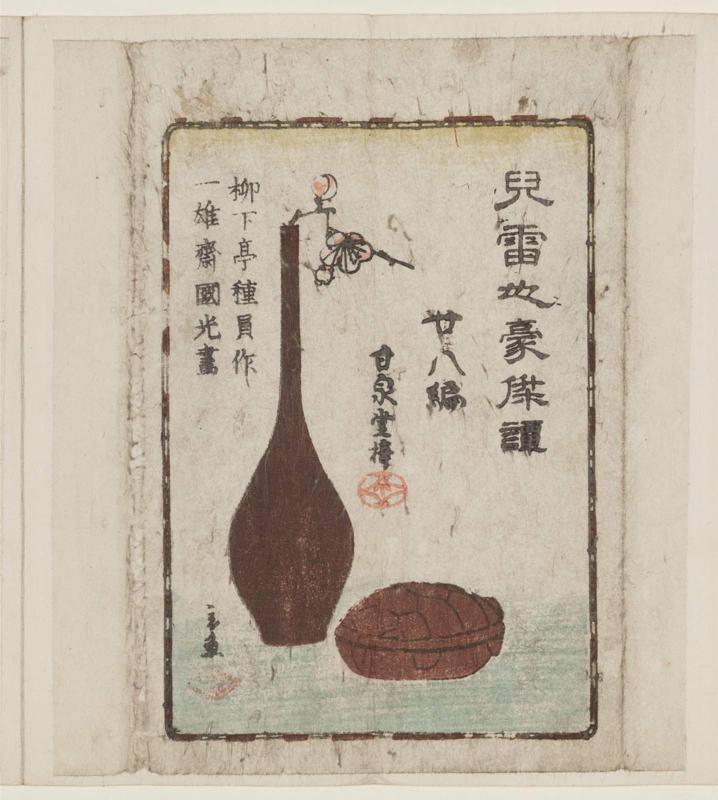 兒雷也豪傑譚
廿八編
甘泉堂梓
柳下亭種員作
一雄齋國光畫